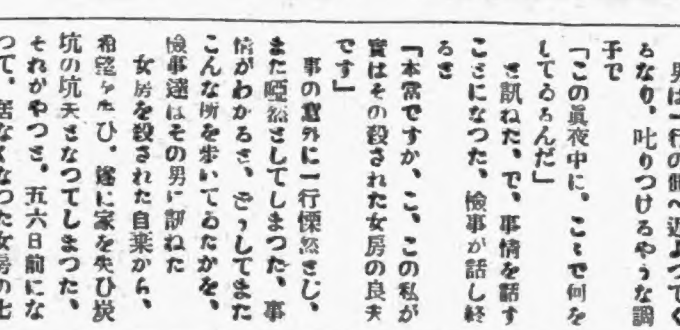 男は一行の側へ近よつてく
るなり、叱りつけるやうな調
子で
「この眞夜中に、こゝで何を
してゐるんだ」
と訊ねた、で、事情を話す
ことになつた、檢事が話し終
ると
「本當ですか、こ、この私が
實はその殺された女房の良夫
です」
事の意外に一行慄然とし、
また啞然としてしまつた、事
情がわかると、どうしてまた
こんな所を歩いてゐたかを、
檢事達はその男に訊ねた
女房を殺された自棄から、
希望を失ひ、遂に家を失ひ炭
坑の坑夫となつてしまつた、
それがやつと、五六日前にな
つて、居なくなつた女房の